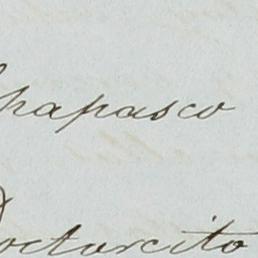 hapasco
octorcito